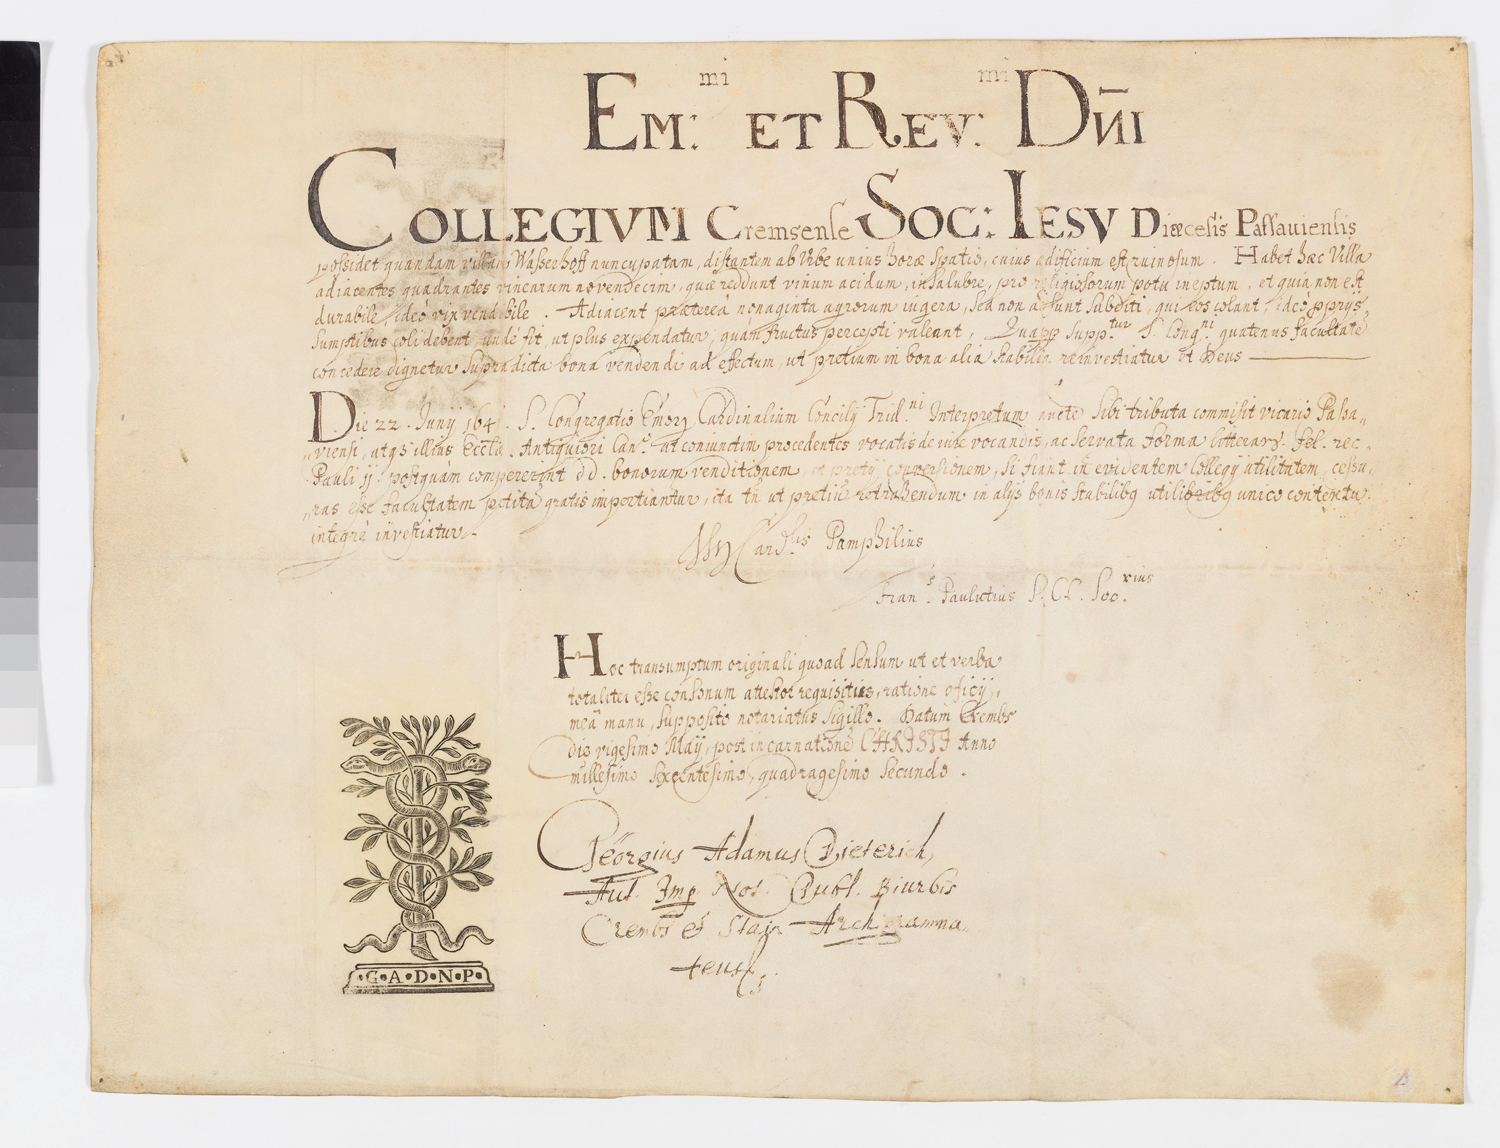 Em:mi et Rev:mi Dn̄i
Collegivm Cremsense Soc: Iesv Diœcesis Passauiensis
possidet quandam villam Wasserhoff nuncupatam, distantem ab Vrbe unius horæ spatio, cuius ædificium est ruinosum. Habet hæc Villa
adiacentes quadrantes vinearum novendecim, quæ reddunt vinum acidum, insalubre, pro religiosorum potu ineptum, et quia non est
durabile, ideò vix vendibile. Adiacent prætereà nonaginta agrorum iugera, sed non adsunt subditi, qui eos colant, ideò pprijs
sumptibus coli debent, unde fit, ut plus expendatur, quàm fructus percepti valeant, Quapp supp:tur S. Cong:ni quatenus facultatē
concedere dignetur supradicta bona vendendi ad effectum, ut pretium in bona alia stabilia reinvestiatur Vt Deus
Die 22. Junij 164 . S. Congregatio Em̄orū Cardinalium Concilij Trid:ni Interpretum aucte sibi tributa commisit vicario Passa„
„viensi, atq3 illius Eccl̄a Antiquiori Can:o at coniunctim procedentes vocatis de iure vocandis, ac servata forma litterarū fel. rec.
Pauli ij postquàm compererint dd. bonorum venditionem, et pretij conversionem, si fiant in evidentem Collegij utilitatem, cessu„
„ras esse facultatem petitā gratis impertiantur, ita tn̄ ut pretiū retrahendum in alijs bonis stabilibq utilibq unico contextu
integrè investiatur.
Card:lis Pamphilius
Fran:s Paulutius S. C. Soc:rius
Hoc transumptum originali quoad sensum ut et verba
totaliter esse consonum attestor requisitus, ratione oficij,
meā manu, supposito notariatus sigillo. Datum Crembs
die vigesimo Maÿ, post incarnationē CHRISTI Anno
millesimo sexcentesimo, quadragesimo secundo.
Geörgius Adamus Dieterich,
Aut. Imp. Not. Publ. Biurbis
Crembs et Stain Archigramma
teus
·G·A·D·N·P·